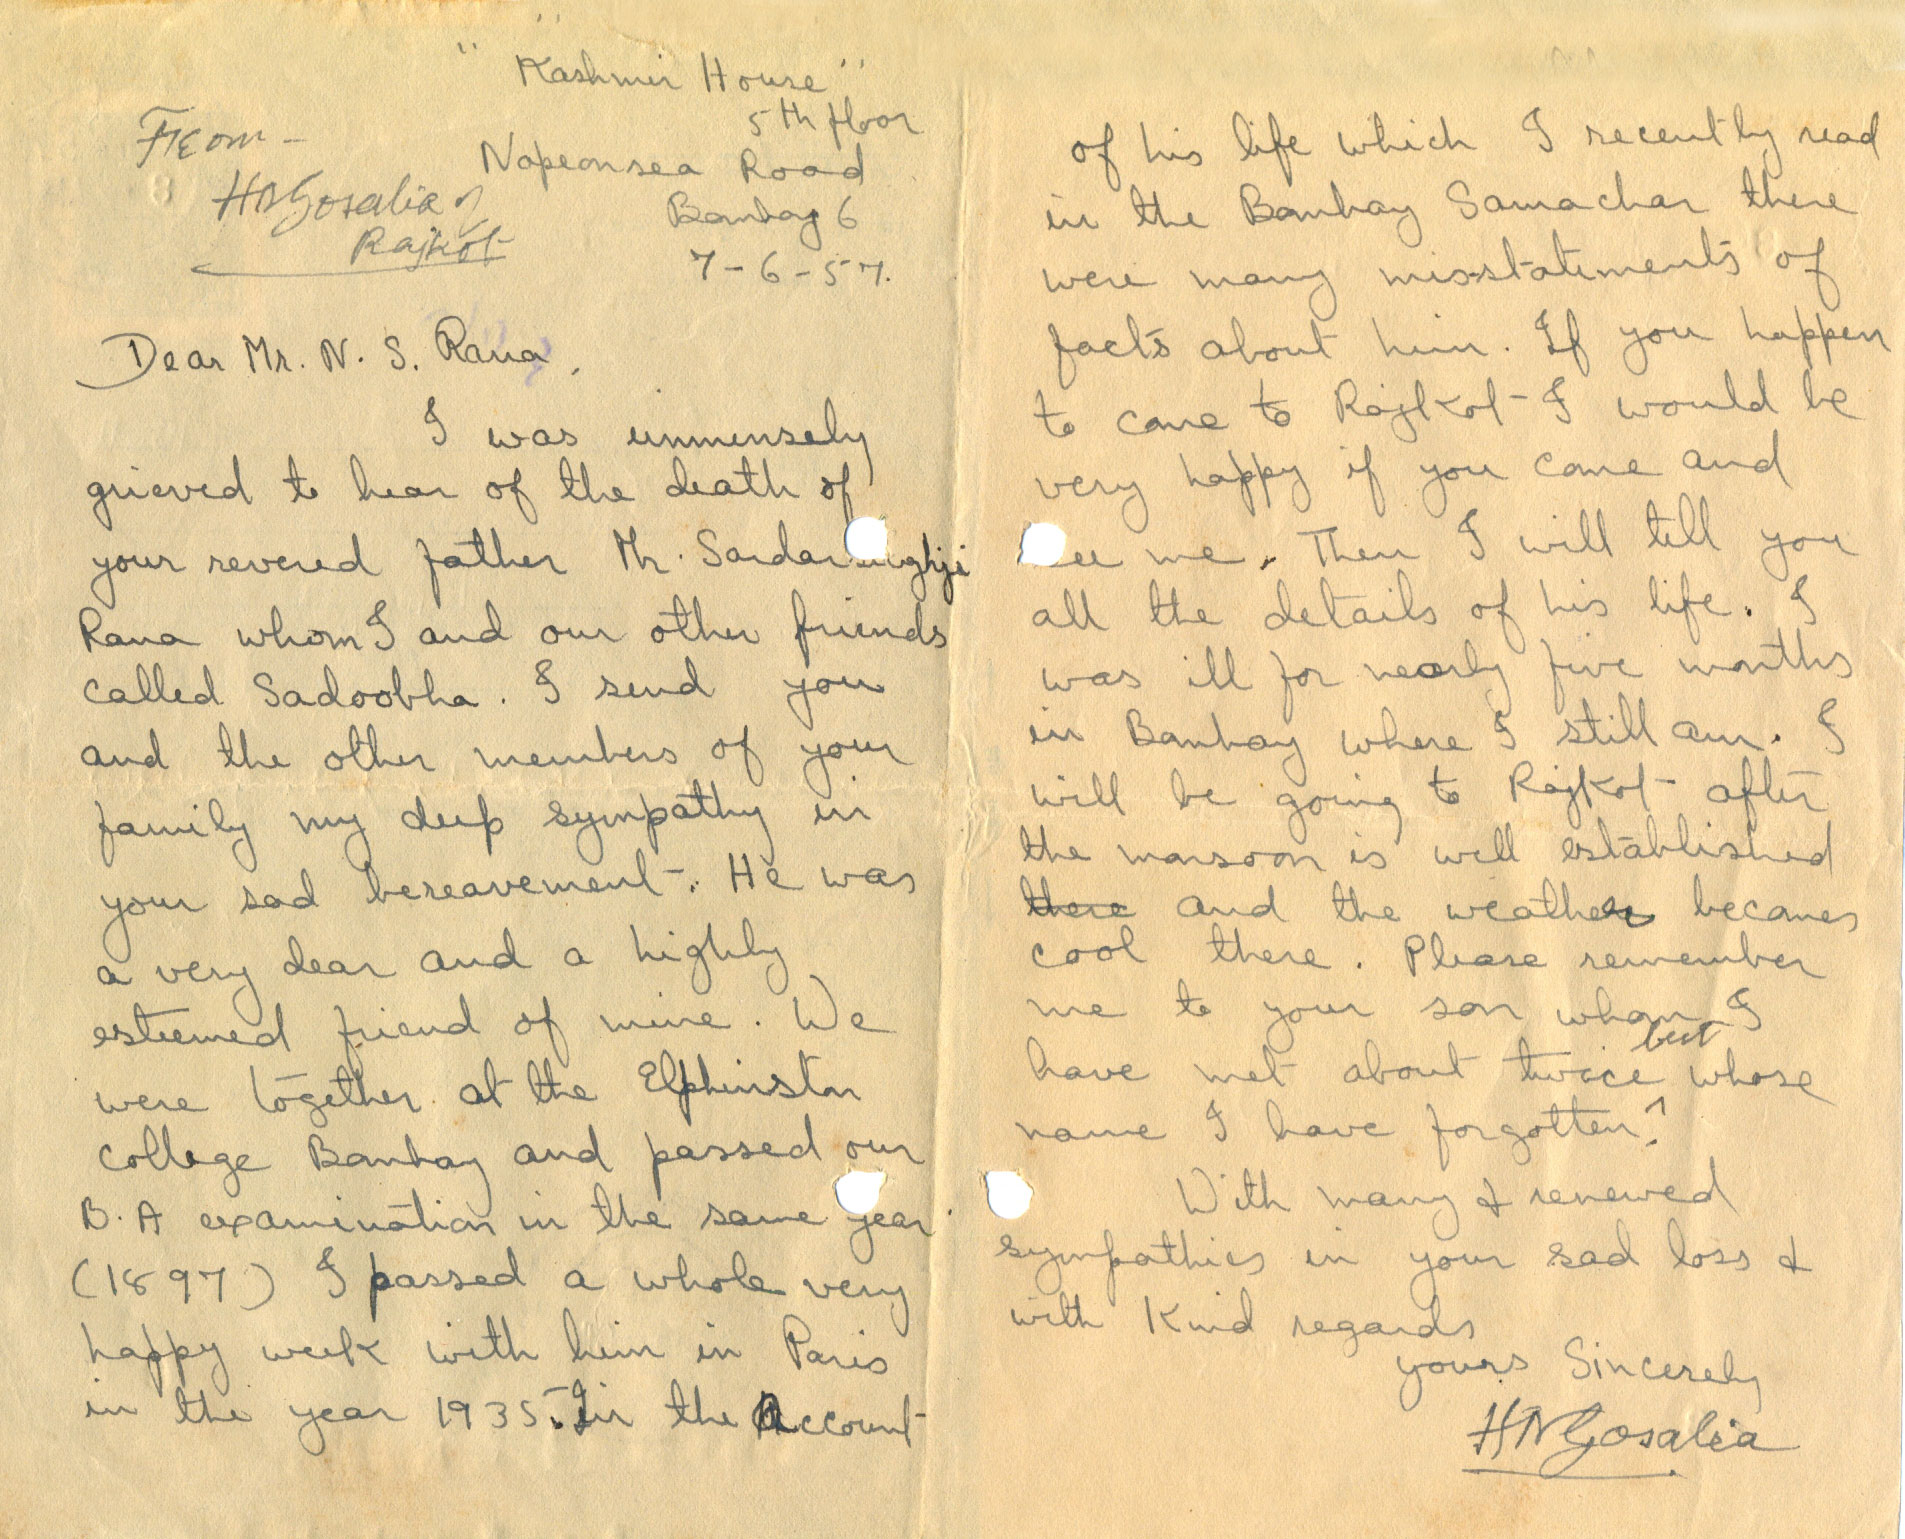 "Kashmir House"
5th floor
From -
Napeansea Road
HNGosalia of
Bombay 6
Rajkot
7-6-57.
Dear Mr. N. S. Rana,
I was immensely
grieved to hear of the death of
your revered father Mr. Sardarsinghji
Rana whom I and our other friends
called Sadoobha. I send you
and the other members of your
family my deep sympathy in
your sad bereavement. He was
a very dear and a highly
esteemed friend of mine. We
were together at the Elphinston
College Bombay and passed our
B.A examination in the same year
(1897) I passed a whole very
happy week with him in Paris
in the year 1935. In the Account
of his life which I recently read
in the Bombay Samachar there
were many mis-statements of
facts about him. If you happen
to come to Rajkot I would be
very happy if you come and
see me. Then I will tell you
all the details of his life. I
was ill for nearly five months
in Bombay where I still am. I
will be going to Rajkot after
the monsoon is well established
there and the weather becomes
cool there. Please remember
me to your son whom I
have met about twice but whose
name I have forgotten.
With many & renewed
sympathies in your sad loss &
with kind regards
yours Sincerely
HNGosalia